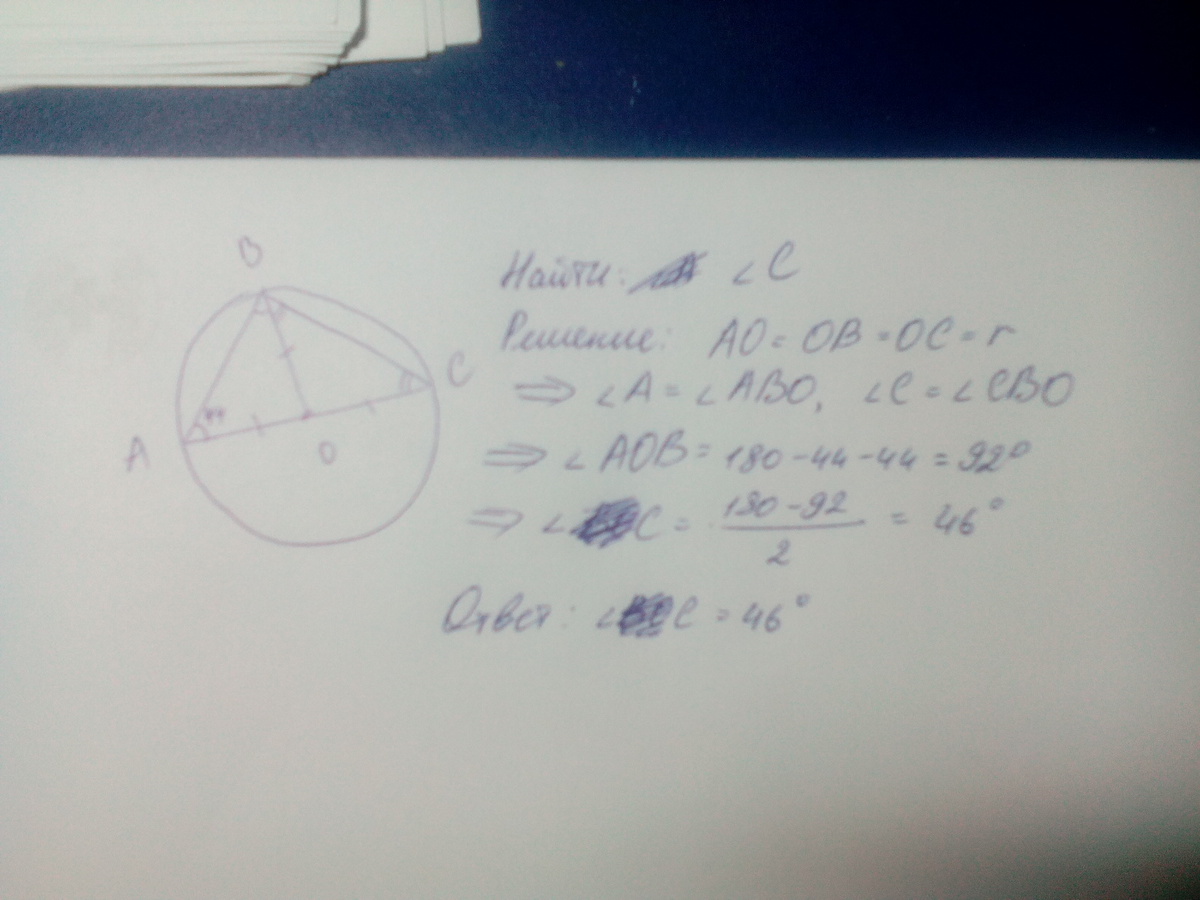 B
C
44
A
O
Найти: ∠C
Решение: AO = OB = OC = r
⇒ ∠A = ∠ABO, ∠C = ∠CBO
⇒ ∠AOB = 180 - 44 - 44 = 92°
⇒ ∠C = (180 - 92) / 2 = 46°
Ответ: ∠C = 46°